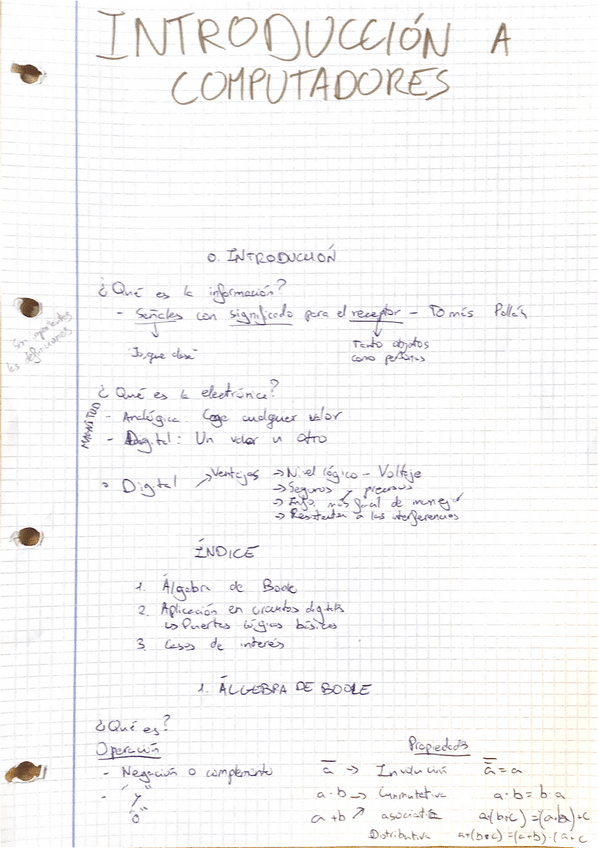 INTRODUCCIÓN A
COMPUTADORES
0. INTRODUCCIÓN
¿Qué es la información?
- Señales con significado para el receptor - Tomás Pollán
Tanto objetos
como personas
Son importantes
las definiciones
¿Qué es la electrónica?
MAGNITUD
- Analógica: Coge cualquier valor
- Digital: Un valor u otro
Digital → Ventajas → Nivel lógico - Voltaje
→ Seguros y precisos
→ Info. más fácil de manejar
→ Resistentes a las interferencias
ÍNDICE
1. Álgebra de Boole
2. Aplicación en circuitos digitales
↳ Puertas lógicas básicas
3. Casos de interés
1. ÁLGEBRA DE BOOLE
¿Qué es?
Operación Propiedades
- Negación o complemento a̅ → Involución a̿ = a
- "Y" a·b → Conmutativa a·b = b·a
"O" a+b ↗ asociativa a+(b+c)=(a+b)+c
Distributiva